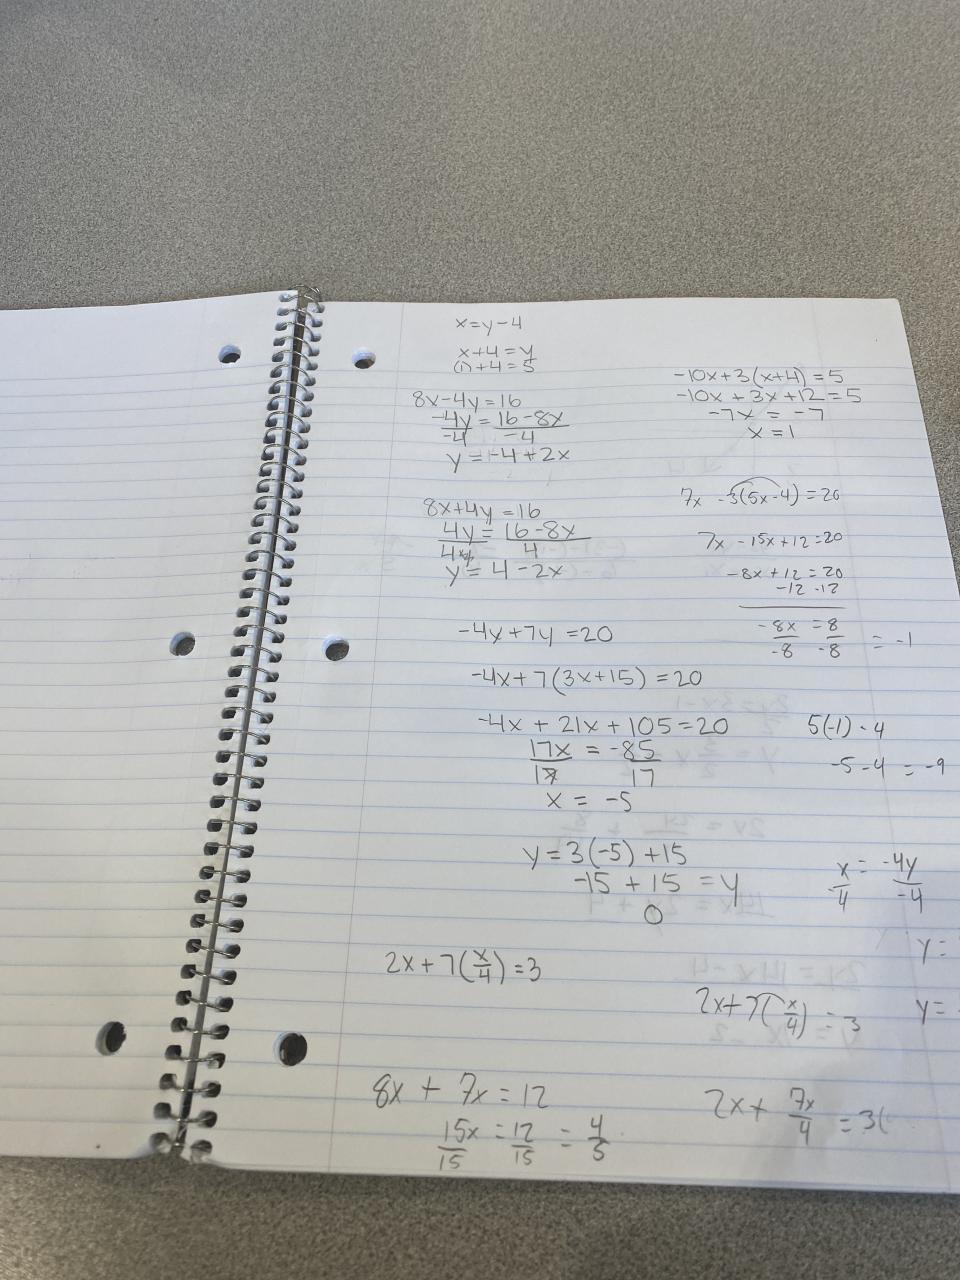 x=y-4
x+4=y
(1)+4=5
8x-4y=16
-4y=16-8x
-4 -4
y=-4+2x
-10x+3(x+4)=5
-10x+3x+12=5
-7x=-7
x=1
8x+4y=16
4y=16-8x
4 4
y=4-2x
7x-3(5x-4)=20
7x-15x+12=20
-8x+12=20
-12 -12
-8x=8
-8 -8 =-1
-4x+7y=20
-4x+7(3x+15)=20
-4x+21x+105=20
17x=-85
17 17
x=-5
5(-1)-4
-5-4=-9
y=3(-5)+15
-15+15=y
0
x=-4y
4 -4
y=
y=
2x+7(x/4)=3
2x+7(x/4)=3
8x+7x=12
15x=12=4
15 15 5
2x+7x/4=3(